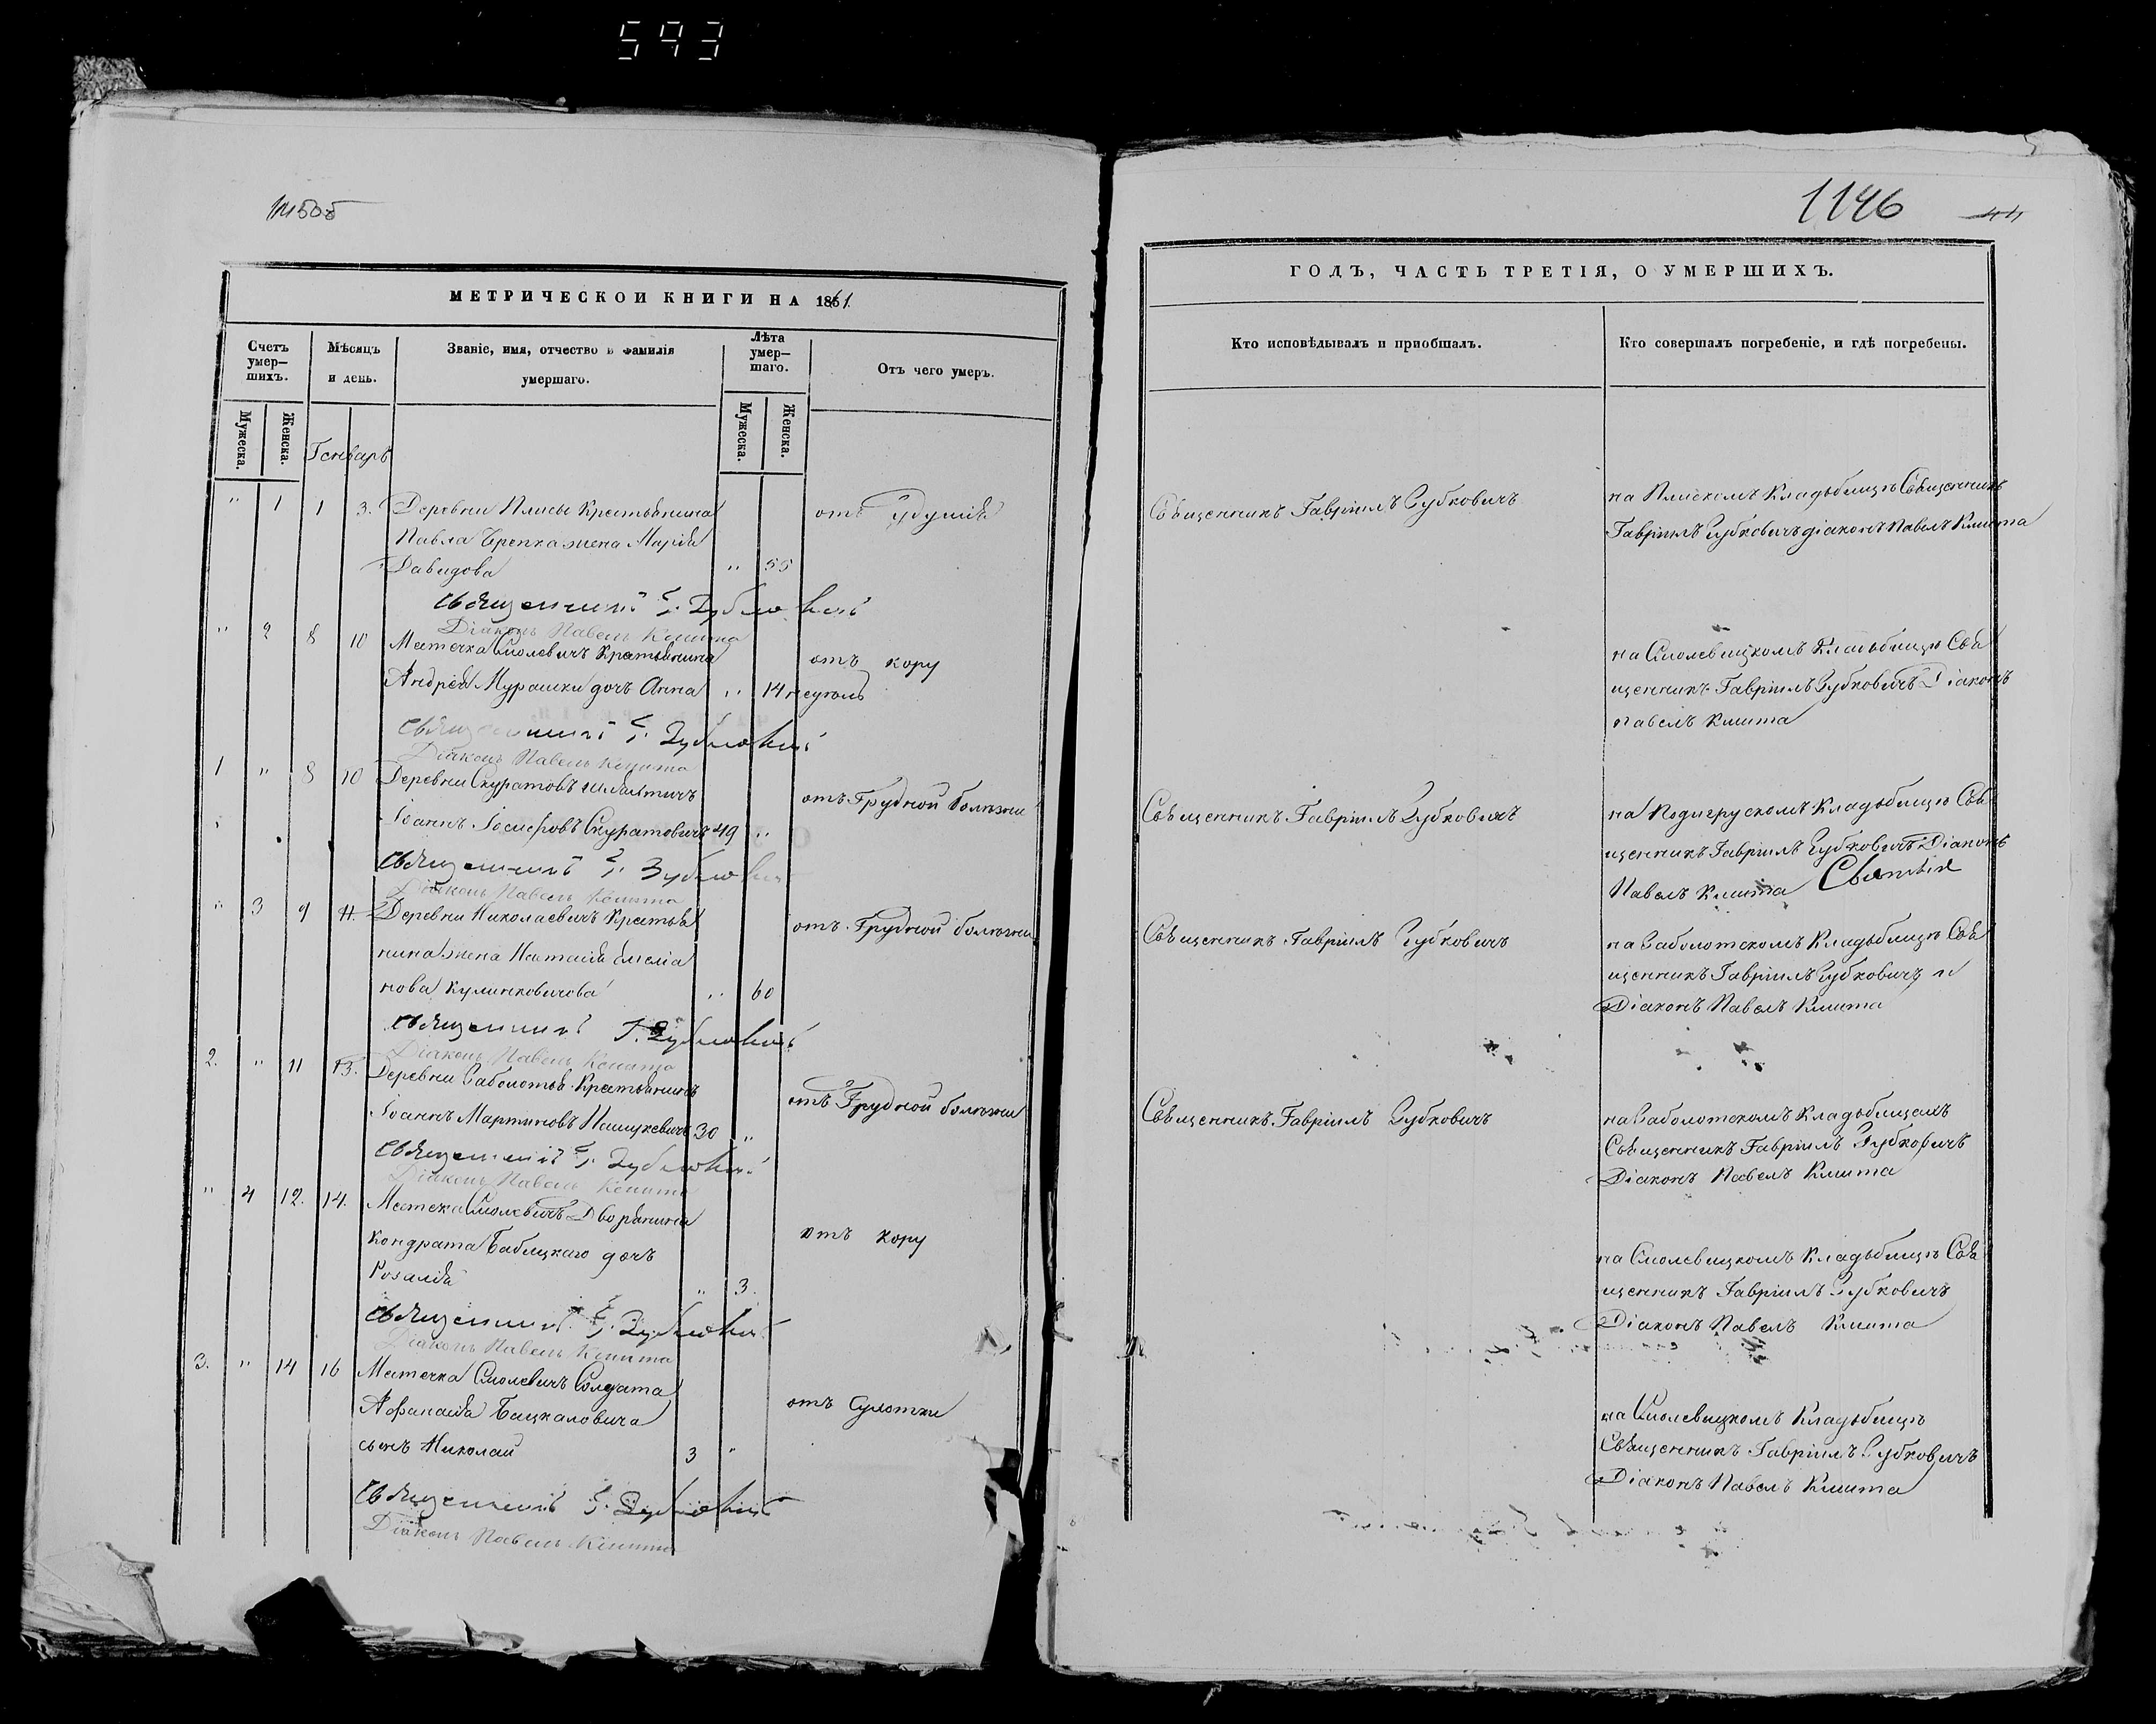 593
1146
44
МЕТРИЧЕСКОЙ КНИГИ НА 1861
ГОДЪ, ЧАСТЬ ТРЕТІЯ, О УМЕРШИХЪ.
Счетъ умер-шихъ.
Мѣсяцъ и день.
Званіе, имя, отчество и фамилія умершаго.
Лѣта умер-шаго.
Отъ чего умеръ.
Кто исповѣдывалъ и пріобщалъ.
Кто совершалъ погребеніе, и гдѣ погребены.
Мужеска.
Женска.
Мужеска.
Женска.
Генварь
" 1 1 3. Деревни Плисы Крестьянина
Павла жена Марія
Давидова " 55
отъ удушія
Священникъ Гавріилъ Зубковичъ
на Плискомъ Кладьбищѣ Священникъ
Гавріилъ Зубковичъ діаконъ Павелъ Кмита
Священникъ Г. Зубковичъ
Діаконъ Павелъ Кмита
" 2 8 10 Местечка Смолевичъ Крестьянина
Андрея Мурашки дочь Анна " 14 недель
отъ кору
на Смолевицкомъ Кладьбищѣ Свя
щенникъ Гавріилъ Зубковичъ Діаконъ
Павелъ Кмита
Священникъ Г. Зубковичъ
Діаконъ Павелъ Кмита
1 " 8 10 Деревни Скуратовъ шляхтичъ
Іоаннъ Іосифовъ Скуратовичъ 49 "
отъ Грудной болѣзни
Священникъ Гавріилъ Зубковичъ
на Кладьбищѣ Свя
щенникъ Гавріилъ Зубковичъ Діаконъ
Павелъ Кмита
Священникъ Г. Зубковичъ
Діаконъ Павелъ Кмита
" 3 9 11. Деревни Николаевичъ Крестья
нина жена Настасія Емелія
нова Кулинковичова " 60
отъ Грудной болѣзни
Священникъ Гавріилъ Зубковичъ
на Заболотскомъ Кладьбищѣ Свя
щенникъ Гавріилъ Зубковичъ и
Діаконъ Павелъ Кмита
Священникъ Г. Зубковичъ
Діаконъ Павелъ Кмита
2. " 11 13. Деревни Заболотья Крестьянинъ
Іоаннъ Мартиновъ Пашукевичъ 30 "
отъ Грудной болѣзни
Священникъ Гавріилъ Зубковичъ
на Заболотскомъ Кладьбищахъ
Священникъ Гавріилъ Зубковичъ
Діаконъ Павелъ Кмита
Священникъ Г. Зубковичъ
Діаконъ Павелъ Кмита
" 4 12. 14. Местека Смолевичъ Дворянина
Кондрата Бабицкаго дочь
Розалія " 3.
отъ кору
на Смолевицкомъ Кладьбищѣ Свя
щенникъ Гавріилъ Зубковичъ
Діаконъ Павелъ Кмита
Священникъ Г. Зубковичъ
Діаконъ Павелъ Кмита
3. " 14 16 Местечка Смолевичъ Солдата
Афанасія Бацкаловича
сынъ Николай 3 "
отъ Сухотки
на Смолевицкомъ Кладьбищѣ
Священникъ Гавріилъ Зубковичъ
Діаконъ Павелъ Кмита
Священникъ Г. Зубковичъ
Діаконъ Павелъ Кмита